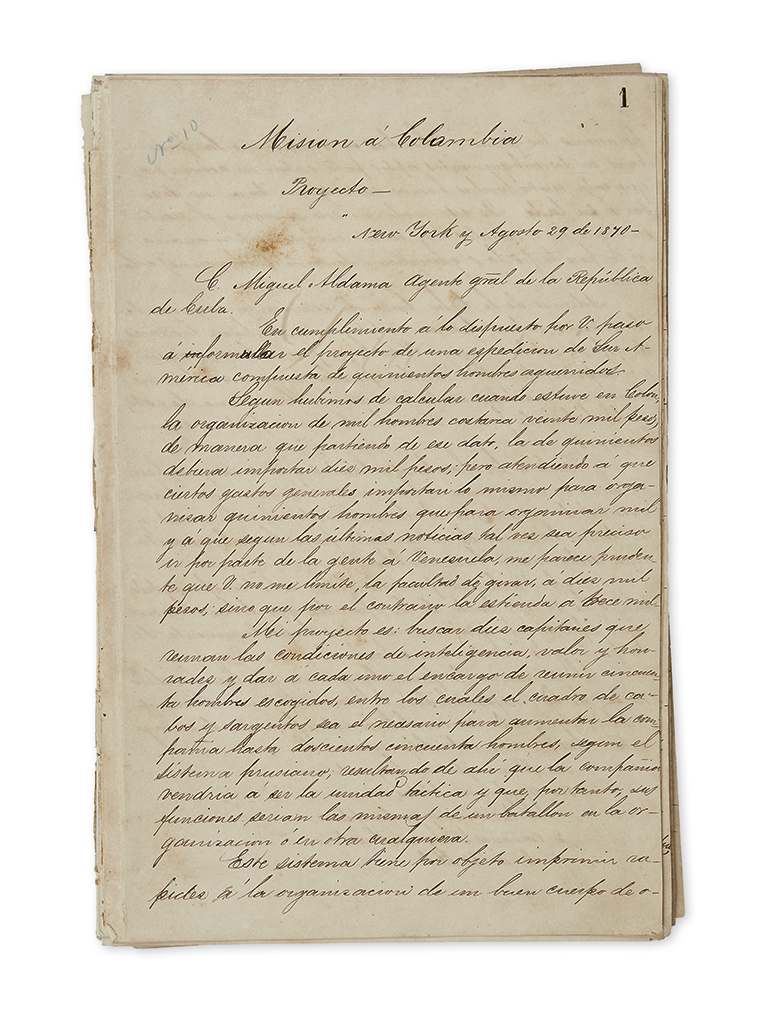 1
Nº 10
Mision á Colombia
Proyecto —
New York y Agosto 29 de 1870 —
C. Miguel Aldama Agente gral de la República
de Cuba.
En cumplimiento á lo dispuesto por V. paso
á formular el proyecto de una espedicion de Sur A-
mérica compuesta de quinientos hombres aguerridos.
Segun hubimos de calcular cuando estuve en Colon,
la organizacion de mil hombres costaria veinte mil pesos,
de manera que partiendo de ese dato, la de quinientos
debiera importar diez mil pesos; pero atendiendo á que
ciertos gastos generales importan lo mismo para orga-
nizar quinientos hombres que para organizar mil
y á que segun las últimas noticias tal vez sea preciso
ir por parte de la gente á Venezuela, me parece pruden-
te que V. no me limite, la facultad de girar, a diez mil
pesos, sino que por el contrario la estienda á trece mil-
Mi proyecto es: buscar diez capitanes que
reunan las condiciones de inteligencia, valor y hon-
radez y dar a cada uno el encargo de reunir cincuen-
ta hombres escogidos, entre los cuales el cuadro de ca-
bos y sargentos sea el necesario para aumentar la com-
pañia hasta doscientos cincuenta hombres, segun el
sistema prusiano; resultando de ahi que la compañia
vendria á ser la unidad táctica y que, por tanto, sus
funciones serian las mismas de un batallon en la or-
ganizacion ó en otra cualquiera.
Este sistema tiene por objeto imprimir ra-
pidez á la organizacion de un buen cuerpo de o-